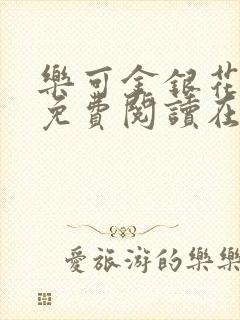 樂可金銀花
免費閱讀在
愛旅游的樂樂